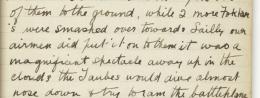 of them to the ground, while 2 more Fokker
's were smashed over towards Sailly our
airmen did put it on to them it was a
magnificent spectacle away up in the
clouds the Taubes would dive almost
nose down & try to ram the battleplane